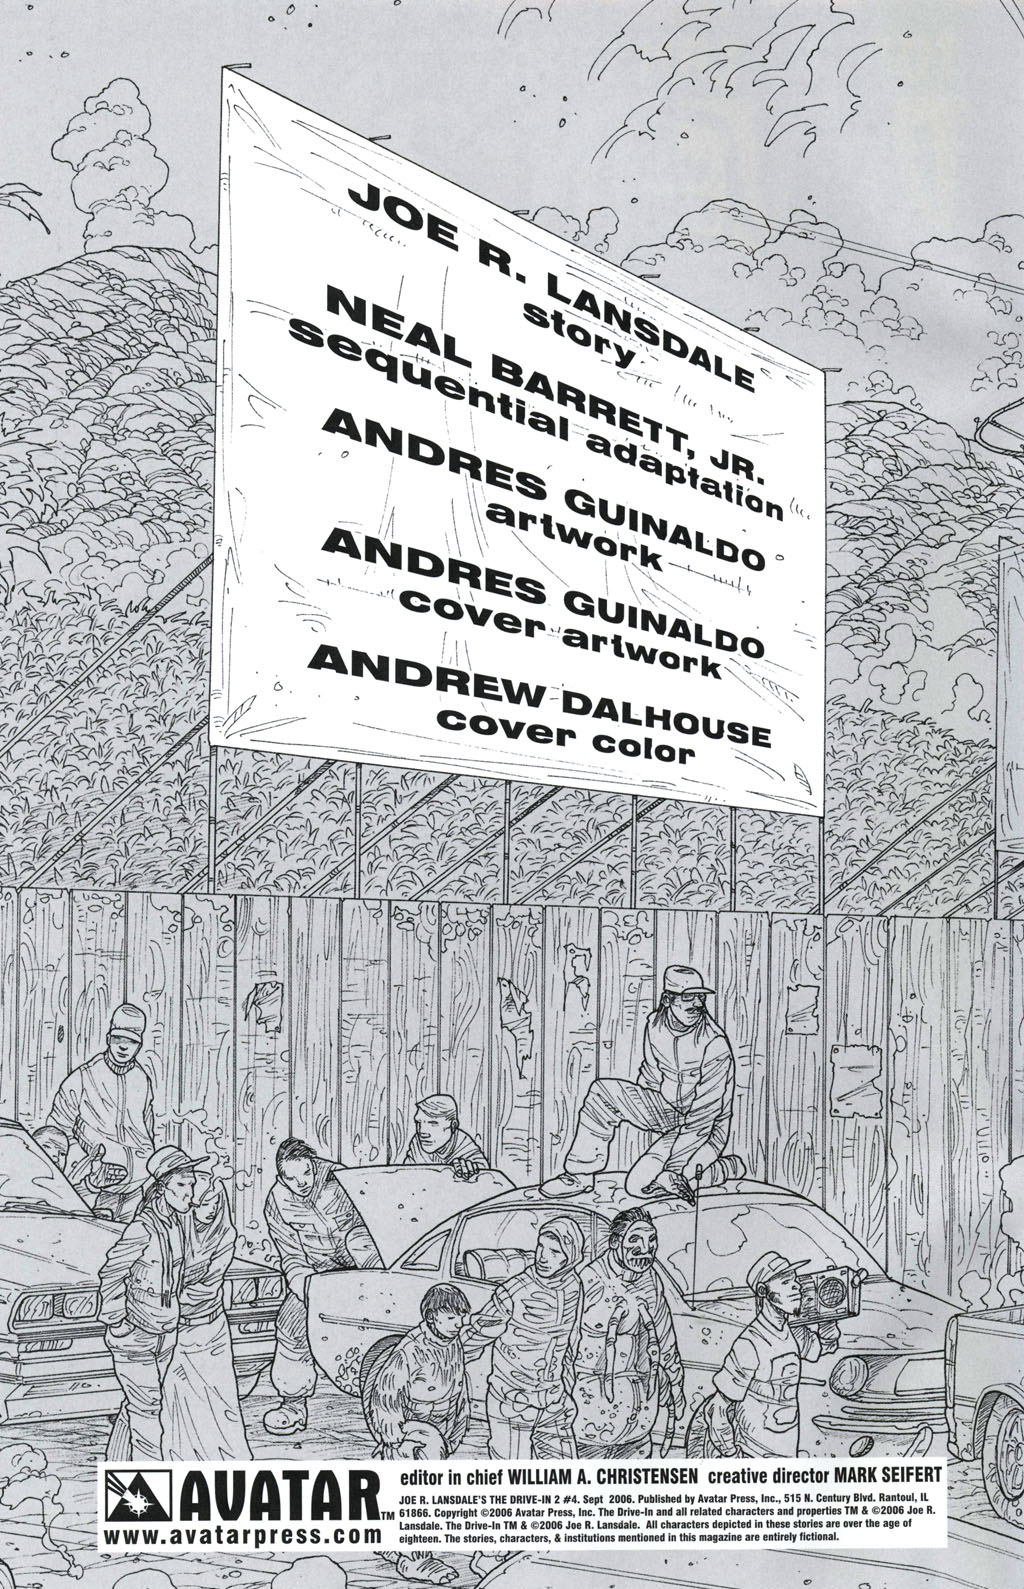 JOE R. LANSDALE
story
NEAL BARRETT, JR.
sequential adaptation
ANDRES GUINALDO
artwork
ANDRES GUINALDO
cover artwork
ANDREW DALHOUSE
cover color
AVATAR TM
www.avatarpress.com
editor in chief WILLIAM A. CHRISTENSEN creative director MARK SEIFERT
JOE R. LANSDALE'S THE DRIVE-IN 2 #4. Sept 2006. Published by Avatar Press, Inc., 515 N. Century Blvd. Rantoul, IL
61866. Copyright ©2006 Avatar Press, Inc. The Drive-In and all related characters and properties TM & ©2006 Joe R.
Lansdale. The Drive-In TM & ©2006 Joe R. Lansdale. All characters depicted in these stories are over the age of
eighteen. The stories, characters, & institutions mentioned in this magazine are entirely fictional.